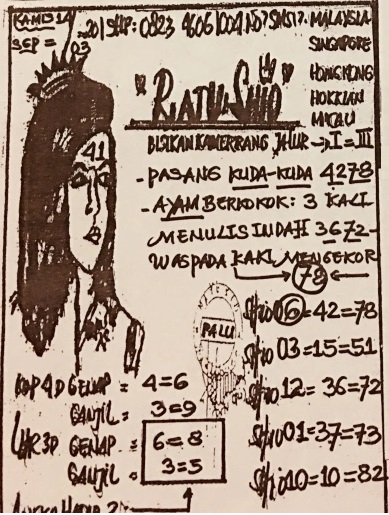 KAMIS 14
SEP = 03
201 SHP: 0823 9606 1004 NO? SMS1?. MALAYSIA
SINGAPORE
HONGKONG
HOKKIAN
MACAU
"RATU SHIO"
BISIKAN KAMERRANG JALUR → I = III
41
- PASANG KUDA-KUDA 4278
- AYAM BERKOKOK: 3 KALI
MENULIS INDAH 3672-
WASPADA KAKI MENGEKOR
78
PALU
Shio 06 = 42 = 78
Shio 03 = 15 = 51
Shio 12 = 36 = 72
Shio 01 = 37 = 73
Shio 10 = 10 = 82
KOP 4D GENAP = 4=6
GANJIL = 3=9
EKR 3D GENAP = 6=8
GANJIL = 3=5